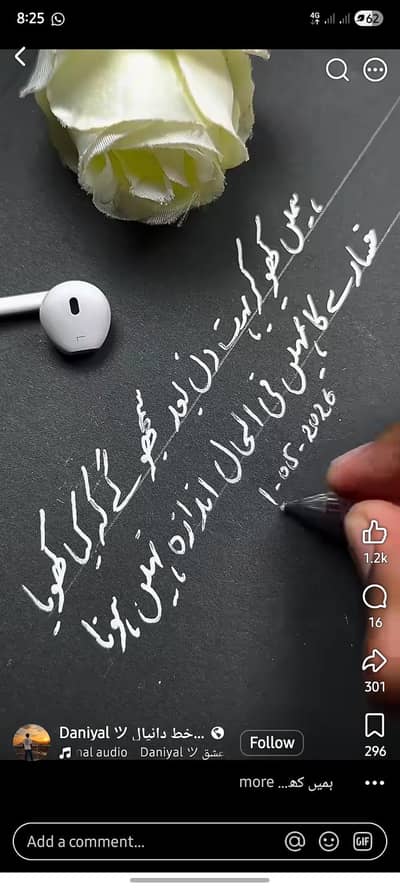 8:25
4G
62
ہمیں کھو کر بہت دن بعد سمجھو گے کہ کیا کھویا
خسارے کا تمہیں فی الحال اندازہ نہیں ہونا
1-05-2026
1.2k
16
301
296
Daniyal ツ خط دانیال...
Follow
nal audio Daniyal ツ عشق
ہمیں کھ... more
Add a comment...
GIF